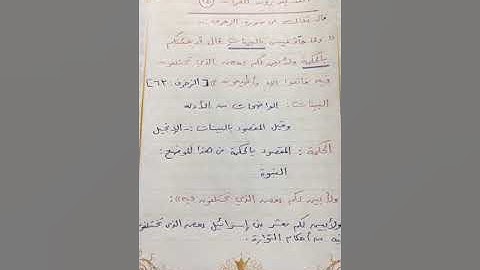 قال تعالى في سورة الزخرف :-
" ولما جاء عيسى بالبينات قال قد جئتكم
بالحكمة ولأبين لكم بعض الذي تختلفون
فيه فاتقوا الله وأطيعون " [الزخرف : ٦٣]
البينات : الواضحات من الأدلة
وقيل المقصود بالبينات :- الإنجيل
الحكمة : المقصود بالحكمة في هذا الموضع :
النبوة
ولأبين لكم بعض الذي تختلفون فيه :
ولأبين لكم معشر بني إسرائيل بعض الذي تختلفون
فيه من أحكام التوراة .